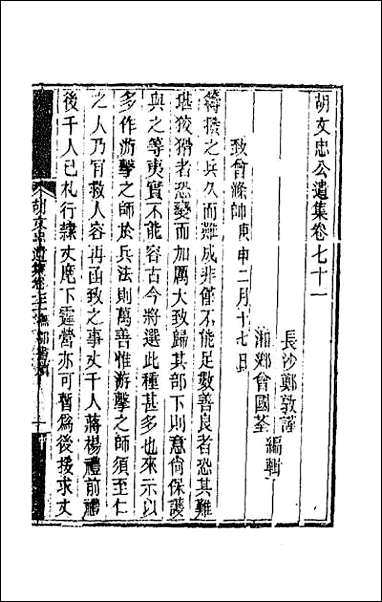 胡文忠公遺集卷七十一
長沙鄭敦謹
湘鄉曾國荃 編輯
致曾滌帥 庚申二月十七日
簡撥之兵久而難成非餉不能足數善良者恐其難
堪狡猾者恐變而加厲大致歸其部下則意尚保護
與之等夷實不能容古今將選此種甚多也來示以
多作游擊之師於兵法則萬善惟游擊之師須至仁
之人乃肯救人容再函致之事丈千人蔣楊禮前禮
後千人已札行隸丈麾下霆營亦可暫為後援求丈
胡文忠遺集卷七十一 撫鄂書牘 一